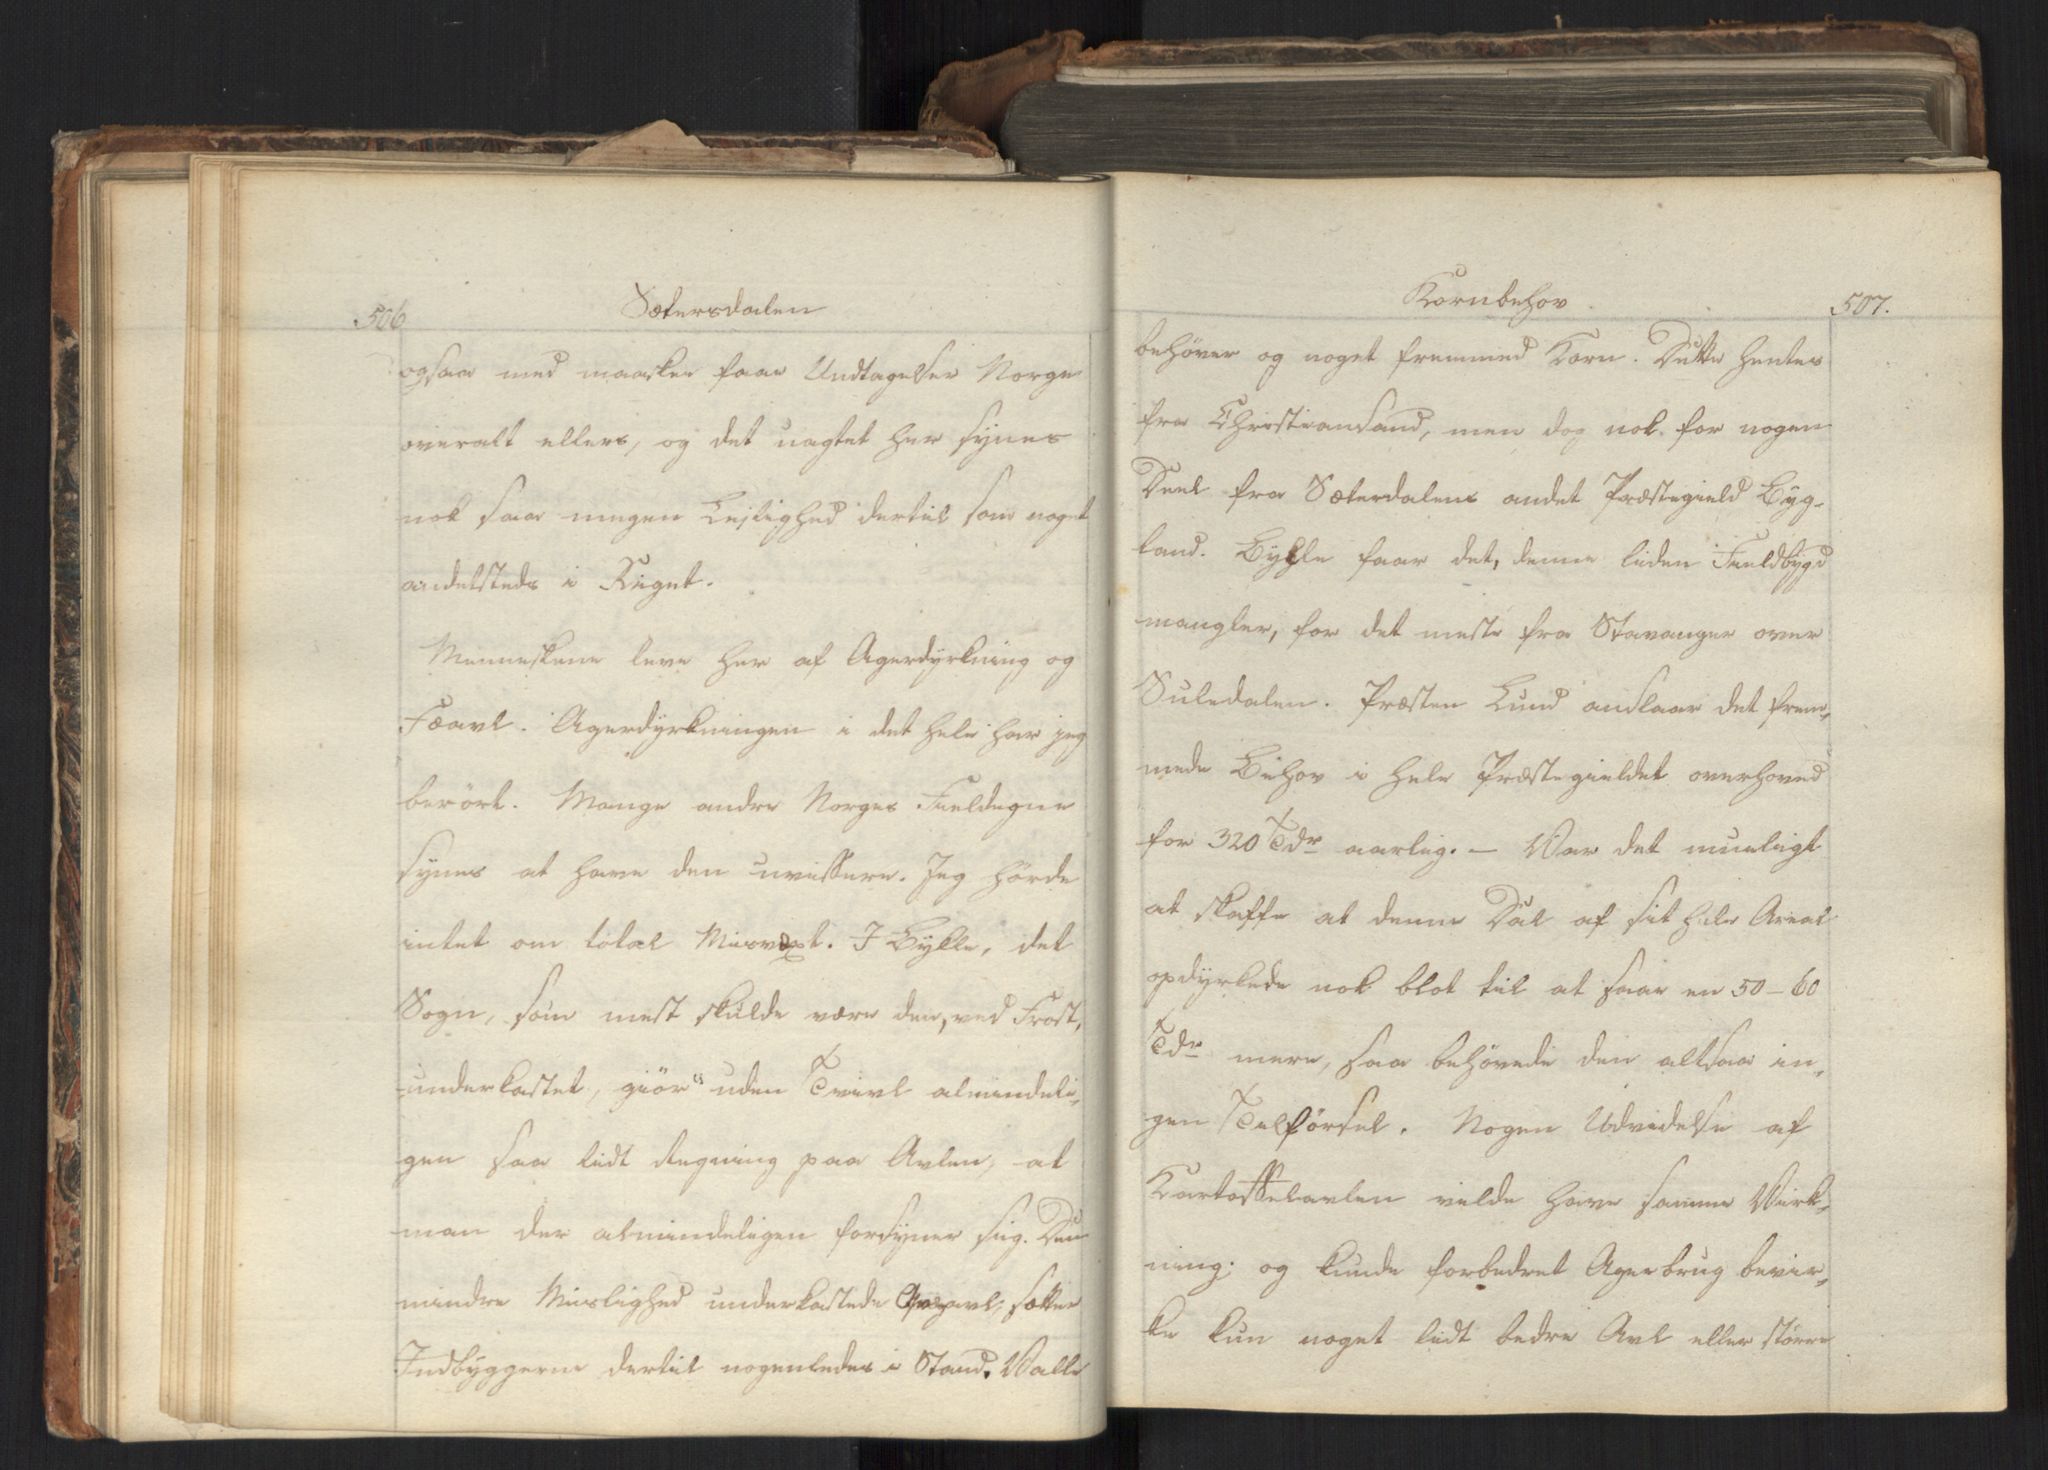 506
Sætersdalen
ogsaa med maaskee faae Undtagelser Norge
overalt ellers, og det uagtet her synes
nok saa megen Lejlighed dertil som noget
andetsteds i Riget.
Menneskene leve her af Agerdyrkning og
Fæavl. Agerdyrkningen i det hele har jeg
berört. Mange andre Norges Fieldegne
synes at have den uvissere. Jeg hörde
intet om total Misvæxt. I Bykle, det
Sogn, som mest skulde være den, ved Frost,
underkastet, giör es uden Tvivl almindeli-
gen saa lidt Regning paa Avlen, at
man der almindeligen forsyner sig. Den
mindre Mislighed underkastede Qvægavl, sætter
Indbyggerne dertil nogenledes i Stand. Valle
Kornbehov
507.
behöver og noget fremmed Korn. Dette hentes
fra Christiansand, men dog nok for nogen
Deel fra Sæterdalens andet Præstegield Byg-
land. Bykle faar det, denne liden Fieldbygd
mangler, for det meste fra Stavanger over
Suledalen. Præsten Lund anslaar det frem-
mede Behov i hele Præstegieldet overhoved
for 320 Tdr aarlig. – Var det mueligt
at skaffe at denne Dal af sit hele Areal
opdyrkede nok blot til at saae en 50–60
Tdr mere, saa behövede den altsaa in-
gen Tilförsel. Nogen Udvidelse af
Kartoffelavlen vilde have samme Virk-
ning; og kunde forbedret Agerbrug bevir-
ke kun noget lidt bedre Avl eller större